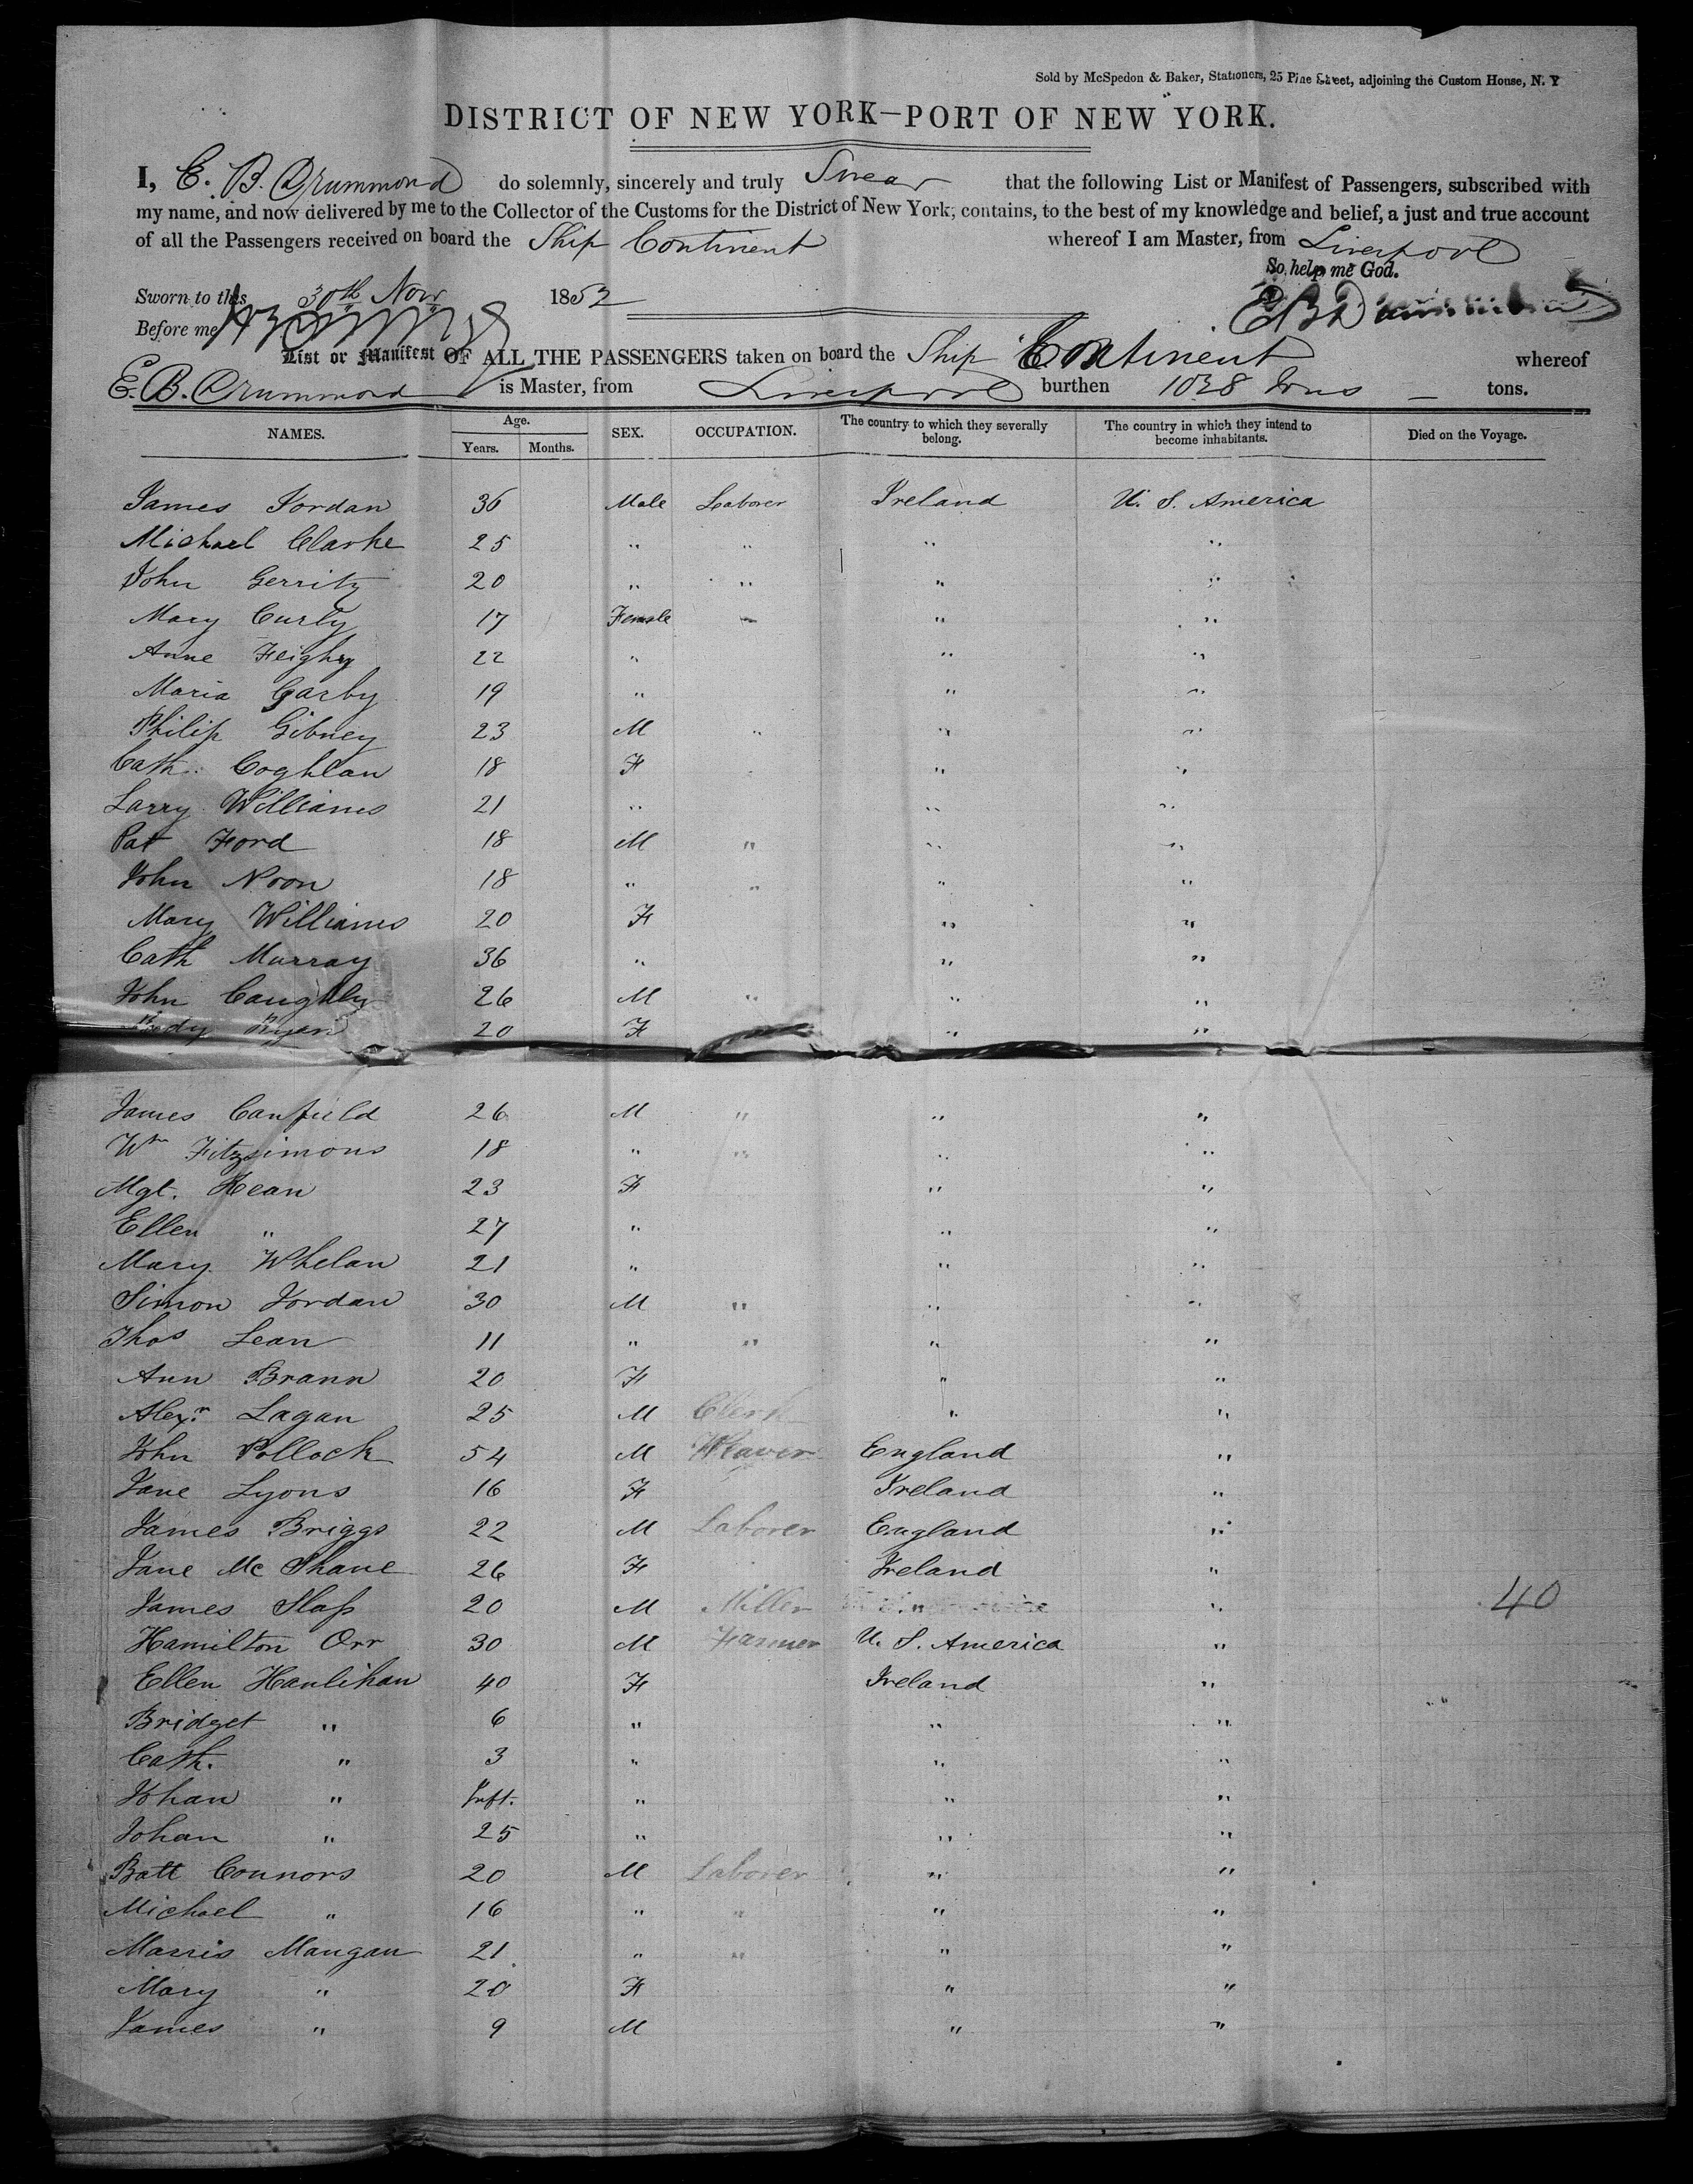 Sold by McSpedon & Baker, Stationers, 25 Pine Street, adjoining the Custom House, N. Y
DISTRICT OF NEW YORK—PORT OF NEW YORK.
I, E. B. Drummond do solemnly, sincerely and truly Swear that the following List or Manifest of Passengers, subscribed with
my name, and now delivered by me to the Collector of the Customs for the District of New York, contains, to the best of my knowledge and belief, a just and true account
of all the Passengers received on board the Ship Continent whereof I am Master, from Liverpool
So help me God.
Sworn to this 30th Nov 1852
E B Drummond
Before me
List or Manifest OF ALL THE PASSENGERS taken on board the Ship Continent whereof
E. B. Drummond is Master, from Liverpool burthen 1038 tons — tons.
NAMES. Age. Years. Months. SEX. OCCUPATION. The country to which they severally belong. The country in which they intend to become inhabitants. Died on the Voyage.
James Jordan 36 Male Laborer Ireland U. S. America
Michael Clarke 25 " " " "
John Gerrity 20 " " " "
Mary Curly 17 Female - " "
Anne Feighy 22 " " "
Maria Garby 19 " " "
Philip Gibney 23 M " " "
Cath. Coghlan 18 F " "
Larry Williams 21 " " "
Pat Ford 18 M " " "
John Noon 18 " " " "
Mary Williams 20 F " "
Cath Murray 36 " " "
John Caughly 26 M " " "
Ryan 20 F " "
James Canfield 26 M " " "
Wm Fitzsimons 18 " " " "
Mgt. Kean 23 F " "
Ellen " 27 " " "
Mary Whelan 21 " " "
Simon Jordan 30 M " " "
Thos Lean 11 " " " "
Ann Brann 20 F " "
Alexr Lagan 25 M Clerk " "
John Pollock 54 M Weaver England "
Jane Lyons 16 F Ireland "
James Briggs 22 M Laborer England "
Jane Mc Shane 26 F Ireland "
James Slass 20 M Miller " " 40
Hamilton Orr 30 M Farmer U. S. America "
Ellen Hanlihan 40 F Ireland "
Bridget " 6 " " "
Cath. " 3 " " "
Johan " Inft. " " "
Johan " 25 " " "
Batt Connors 20 M Laborer " "
Michael " 16 " " " "
Morris Mangan 21 " " " "
Mary " 20 F " "
James " 9 M " "